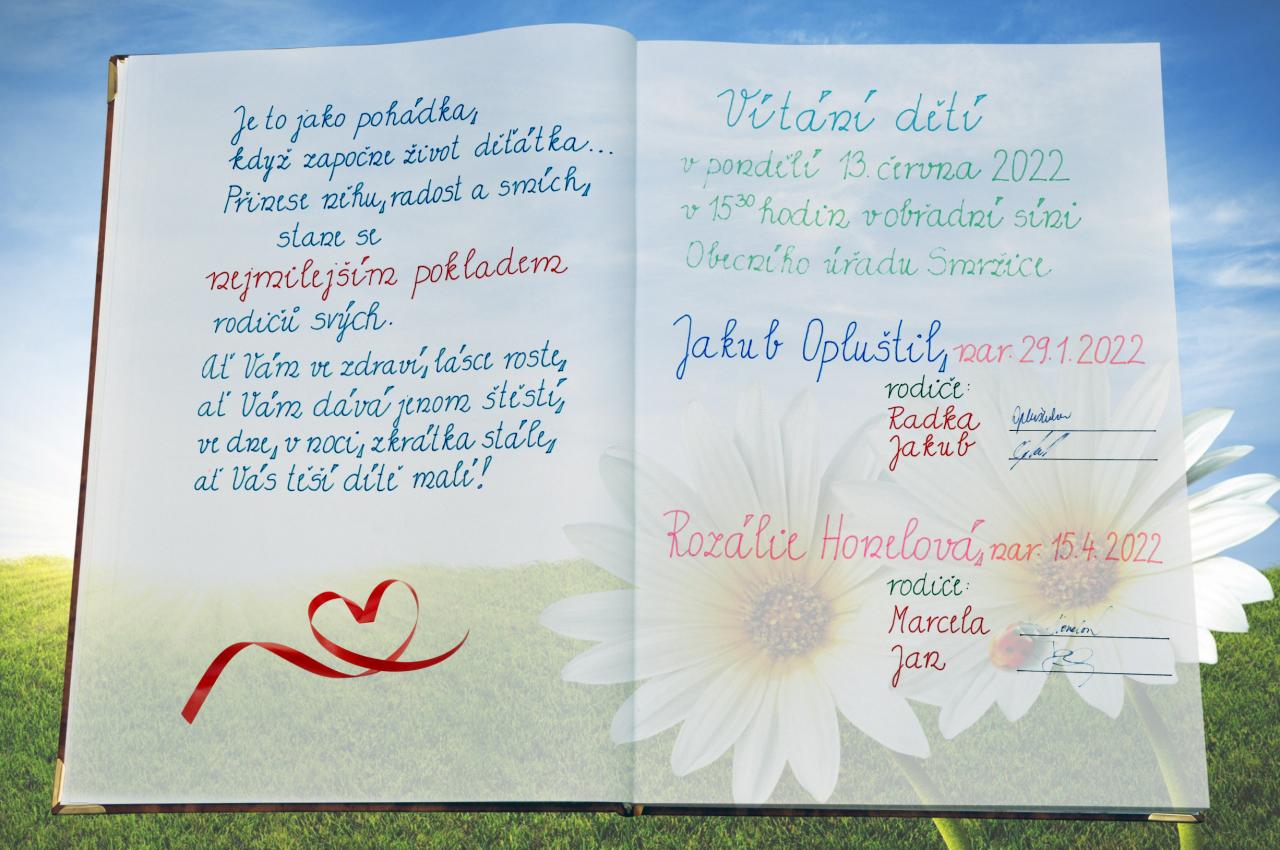 Je to jako pohádka,
když započne život děťátka...
Přinese něhu, radost a smích,
stane se
nejmilejším pokladem
rodičů svých.
Ať Vám ve zdraví, lásce roste,
ať Vám dává jenom štěstí,
ve dne, v noci, zkrátka stále,
ať Vás těší dítě malé!
Vítání dětí
v pondělí 13. června 2022
v 15³⁰ hodin v obřadní síni
Obecního úřadu Smržice
Jakub Opluštil, nar. 29.1.2022
rodiče:
Radka
Jakub
Rozálie Honelová, nar. 15.4.2022
rodiče:
Marcela
Jan